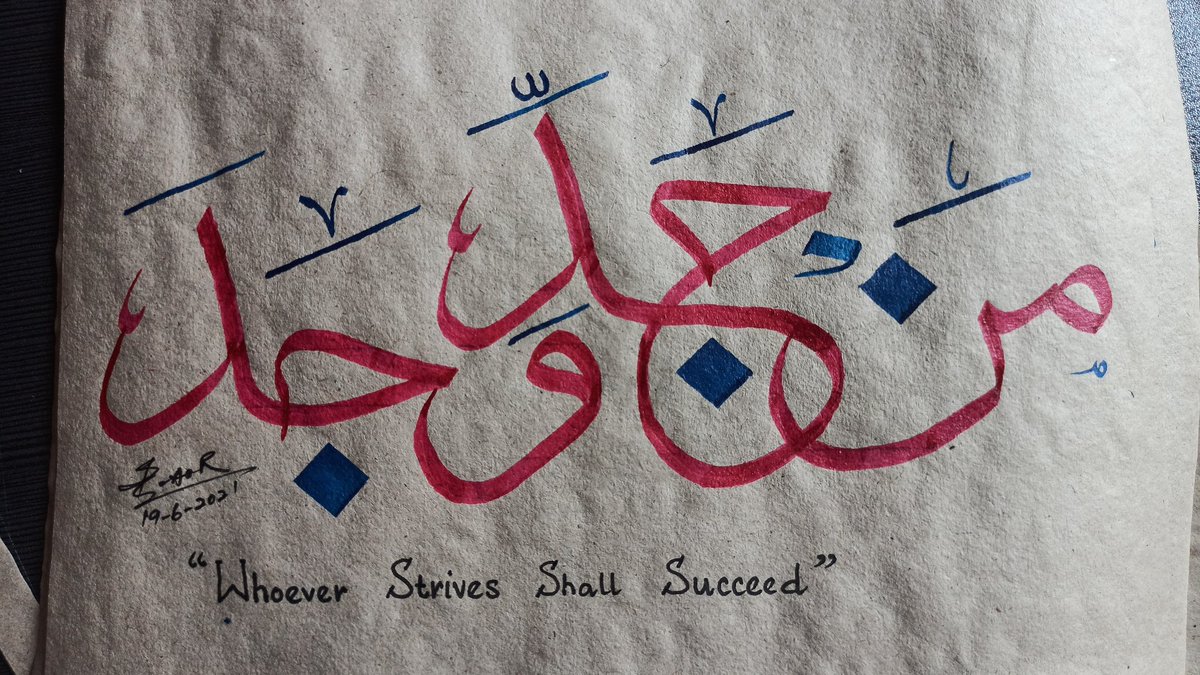 مَنْ جَدَّ وَجَدَ
19-6-2021
“Whoever Strives Shall Succeed”